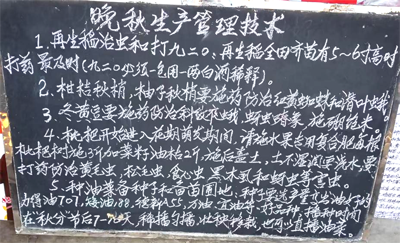 晚秋生产管理技术
1.再生稻治虫和打九二0、再生稻全田齐苗有5～6寸高时
打药最及时(九二0必须一包用一两白酒稀释)。
2.桔秋梢,柚子秋梢要施药防治红黄蜘蛛和潜叶蛾。
3.冬黄豆要施药防治斜纹夜蛾、蚜虫,施硼。
4.枇杷开始进入花期,请施水果专用复合肥每根
枇杷树施3斤加菜籽油枯2斤,施后盖土,土不湿润要浇水,要
打药防治黄毛虫、松毛虫、食心虫、黑木虱和蚜虫等害虫。
5.种油菜备种子和苗圃地,种子要选含量
得油701、88、55、万油、宜油等好品种,播种时间
在秋分节后7天,种播匀播,壮秧移栽,也可以直播油菜。